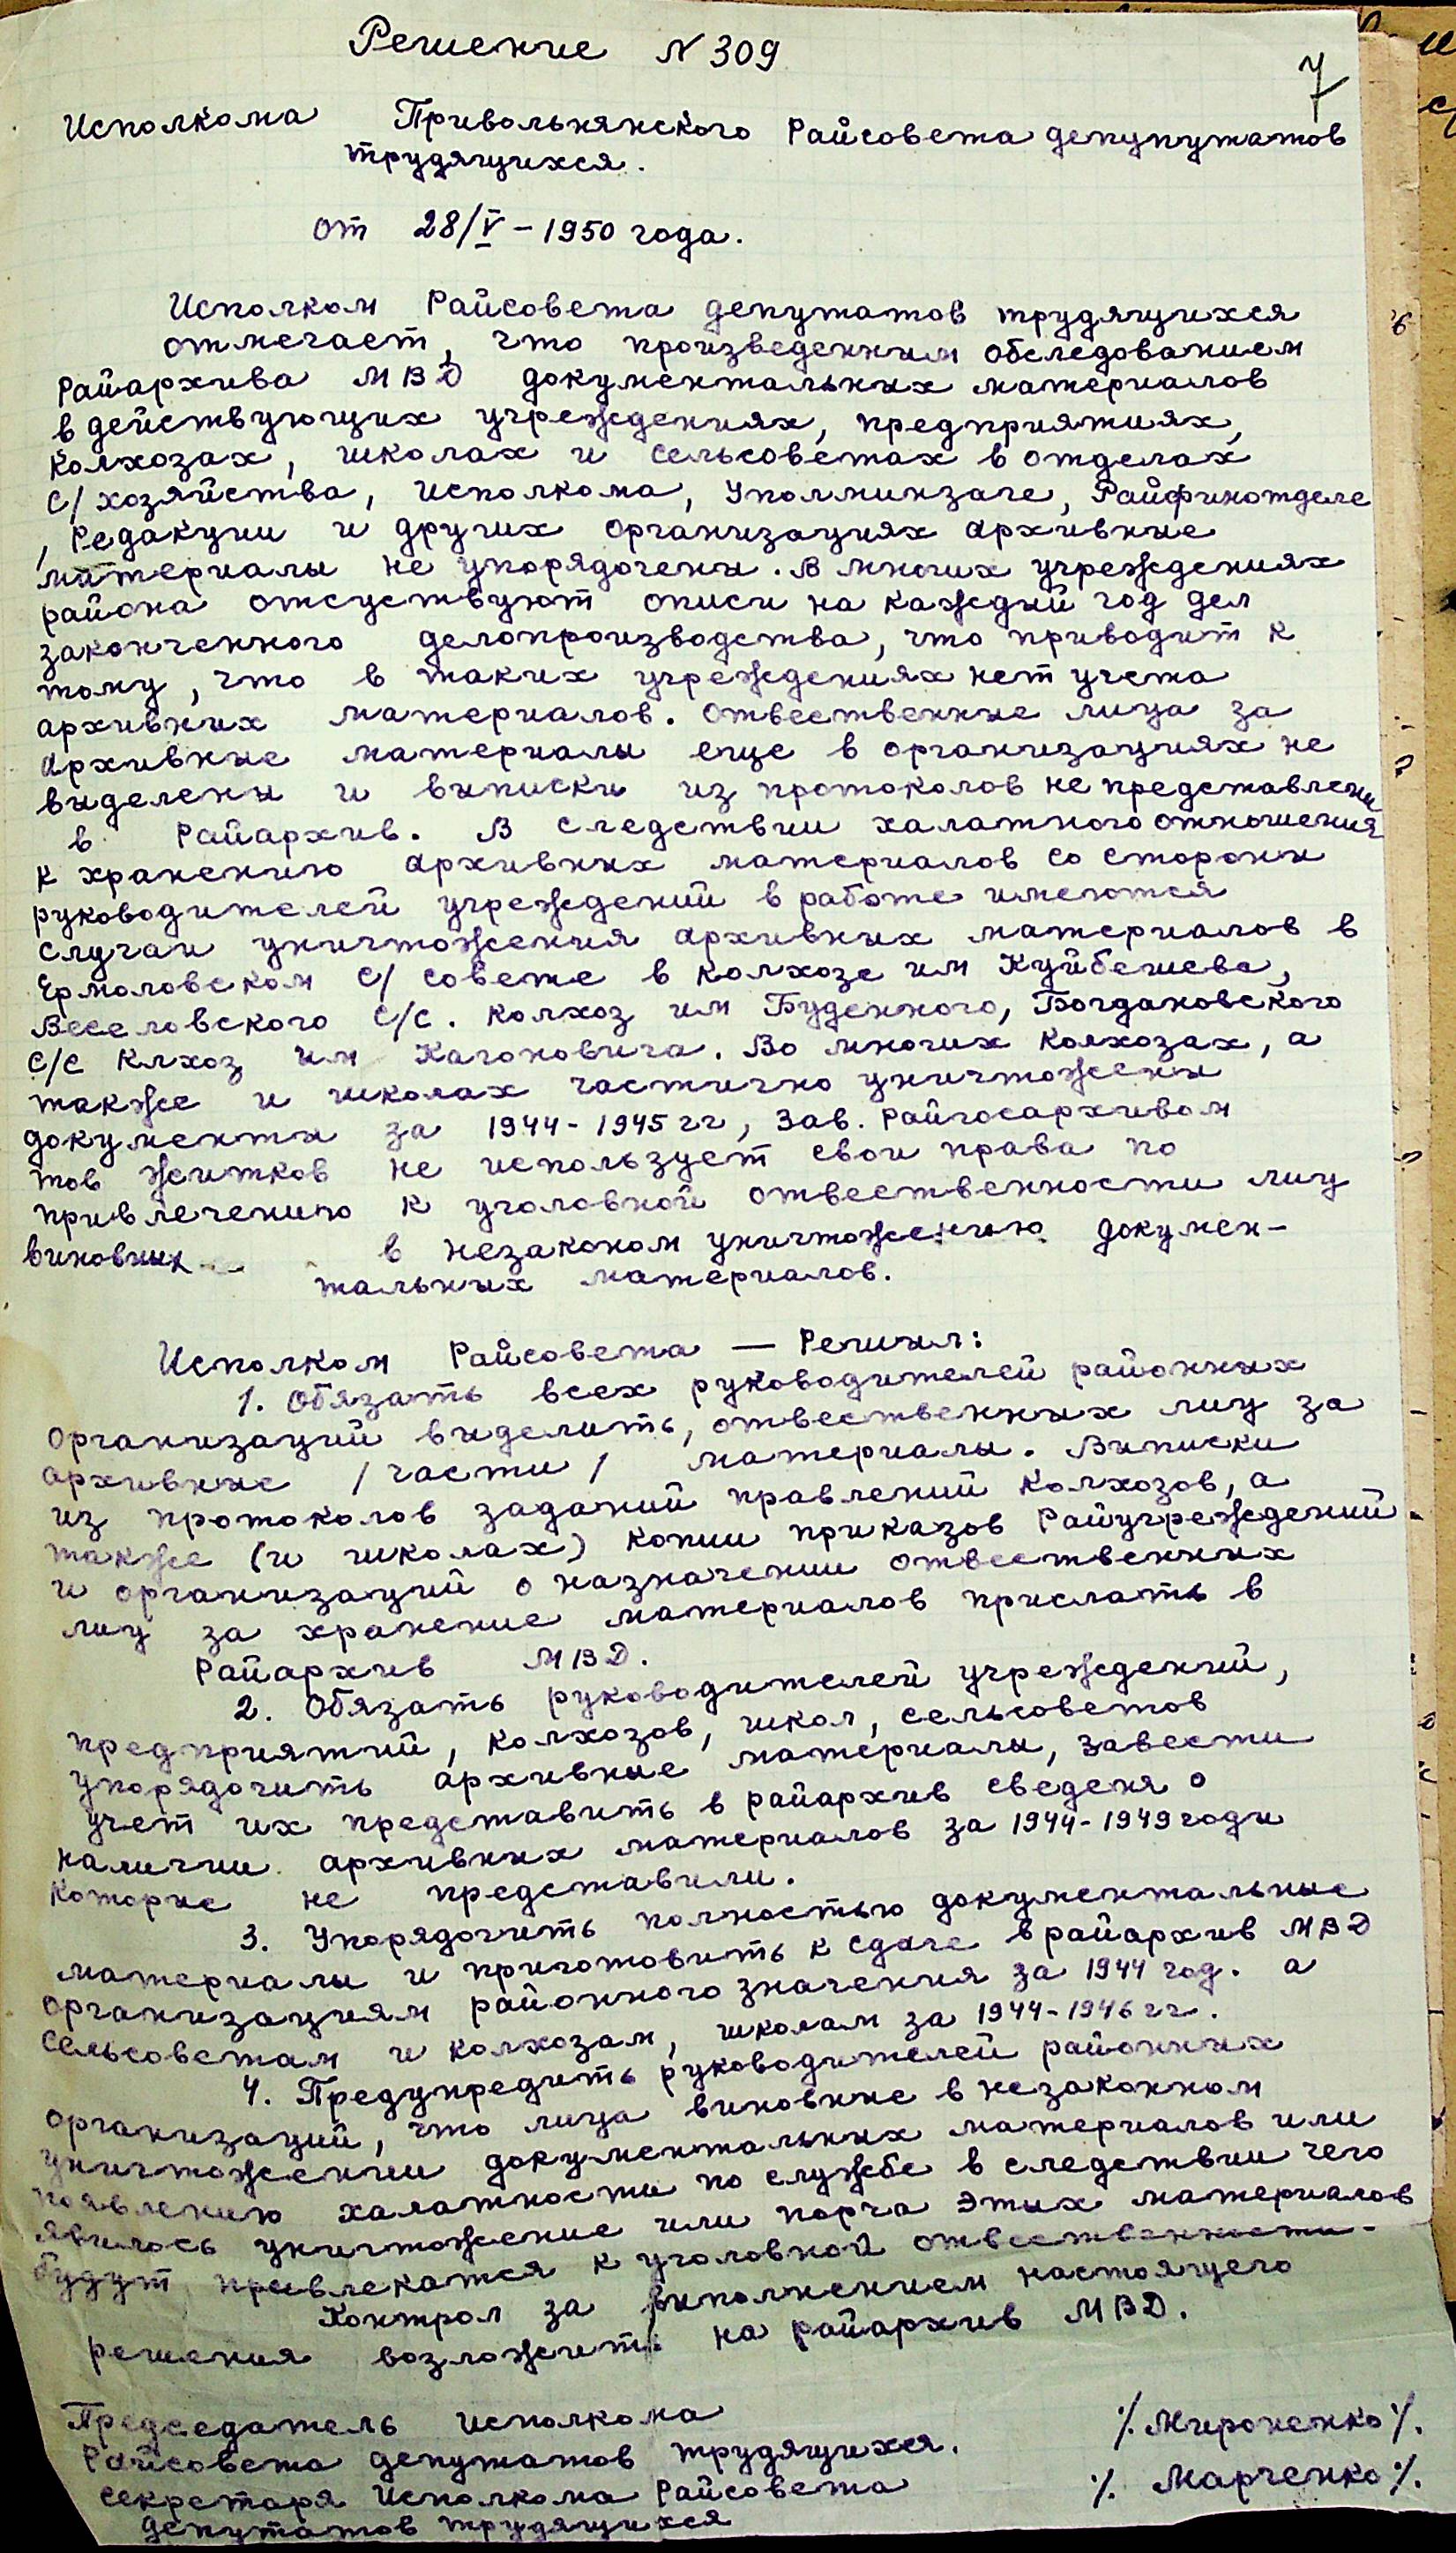 Решение N 309
7
Исполкома Привольнянского Райсовета депупутатов
трудящихся.
от 28/V - 1950 года.
Исполком Райсовета депутатов трудящихся
отмечает, что произведенным обследованием
Райархива МВД документальных материалов
в действующих учреждениях, предприятиях,
колхозах, школах и сельсоветах в отделах
с/хозяйства, исполкома, Уполминзаге, Райфинотделе
, Редакции и других организациях архивные
материалы не упорядочены. В многих учреждениях
района отсуствуют описи на каждый год дел
законченного делопроизводства, что приводит к
тому, что в таких учреждениях нет учета
архивных материалов. Отвественные лица за
архивные материалы еще в организациях не
выделены и выписки из протоколов не представлены
в Райархив. В следствии халатного отношения
к хранению архивных материалов со стороны
руководителей учреждений в работе имеются
случаи уничтожения архивных материалов в
Ермоловском с/совете в колхозе им Куйбешева,
Веселовского с/с. колхоз им Буденного, Богдановского
с/с клхоз им Кагоновича. Во многих колхозах, а
также и школах частично уничтожены
документы за 1944-1945 гг, Зав. Райгосархивом
тов Житков не использует свои права по
привлечению к уголовной отвественности лиц
виновных в незаконом уничтожению докумен-
тальных материалов.
Исполком Райсовета — Решил:
1. Обязать всех руководителей районных
организаций выделить, отвественных лиц за
архивные /части/ материалы. Выписки
из протоколов заданий правлений колхозов, а
также (и школах) копии приказов Райучреждений
и организаций о назначении отвественных
лиц за хранение материалов прислать в
Райархив МВД.
2. Обязать руководителей учреждений,
предприятий, колхозов, школ, сельсоветов
упорядочить архивные материалы, завести
учет их представить в райархив сведеня о
наличии архивных материалов за 1944-1949 годы
которые не представили.
3. Упорядочить полностью документальные
материалы и приготовить к сдаче в райархив МВД
организациям районного значения за 1944 год. а
сельсоветам и колхозам, школам за 1944-1946 гг.
4. Предупредить руководителей районных
организаций, что лица виновные в незаконном
уничтожении документальных материалов или
появлению халатности по службе в следствии чего
явилось уничтожение или порча этих материалов
будут привлекатся к уголовной отвественности.
Контрол за выполнением настоящего
решения возложить на райархив МВД.
Председатель исполкома
Райсовета депутатов трудящихся. /.Мироненко/.
секретаря Исполкома Райсовета /. Марченко/.
депутатов трудящихся